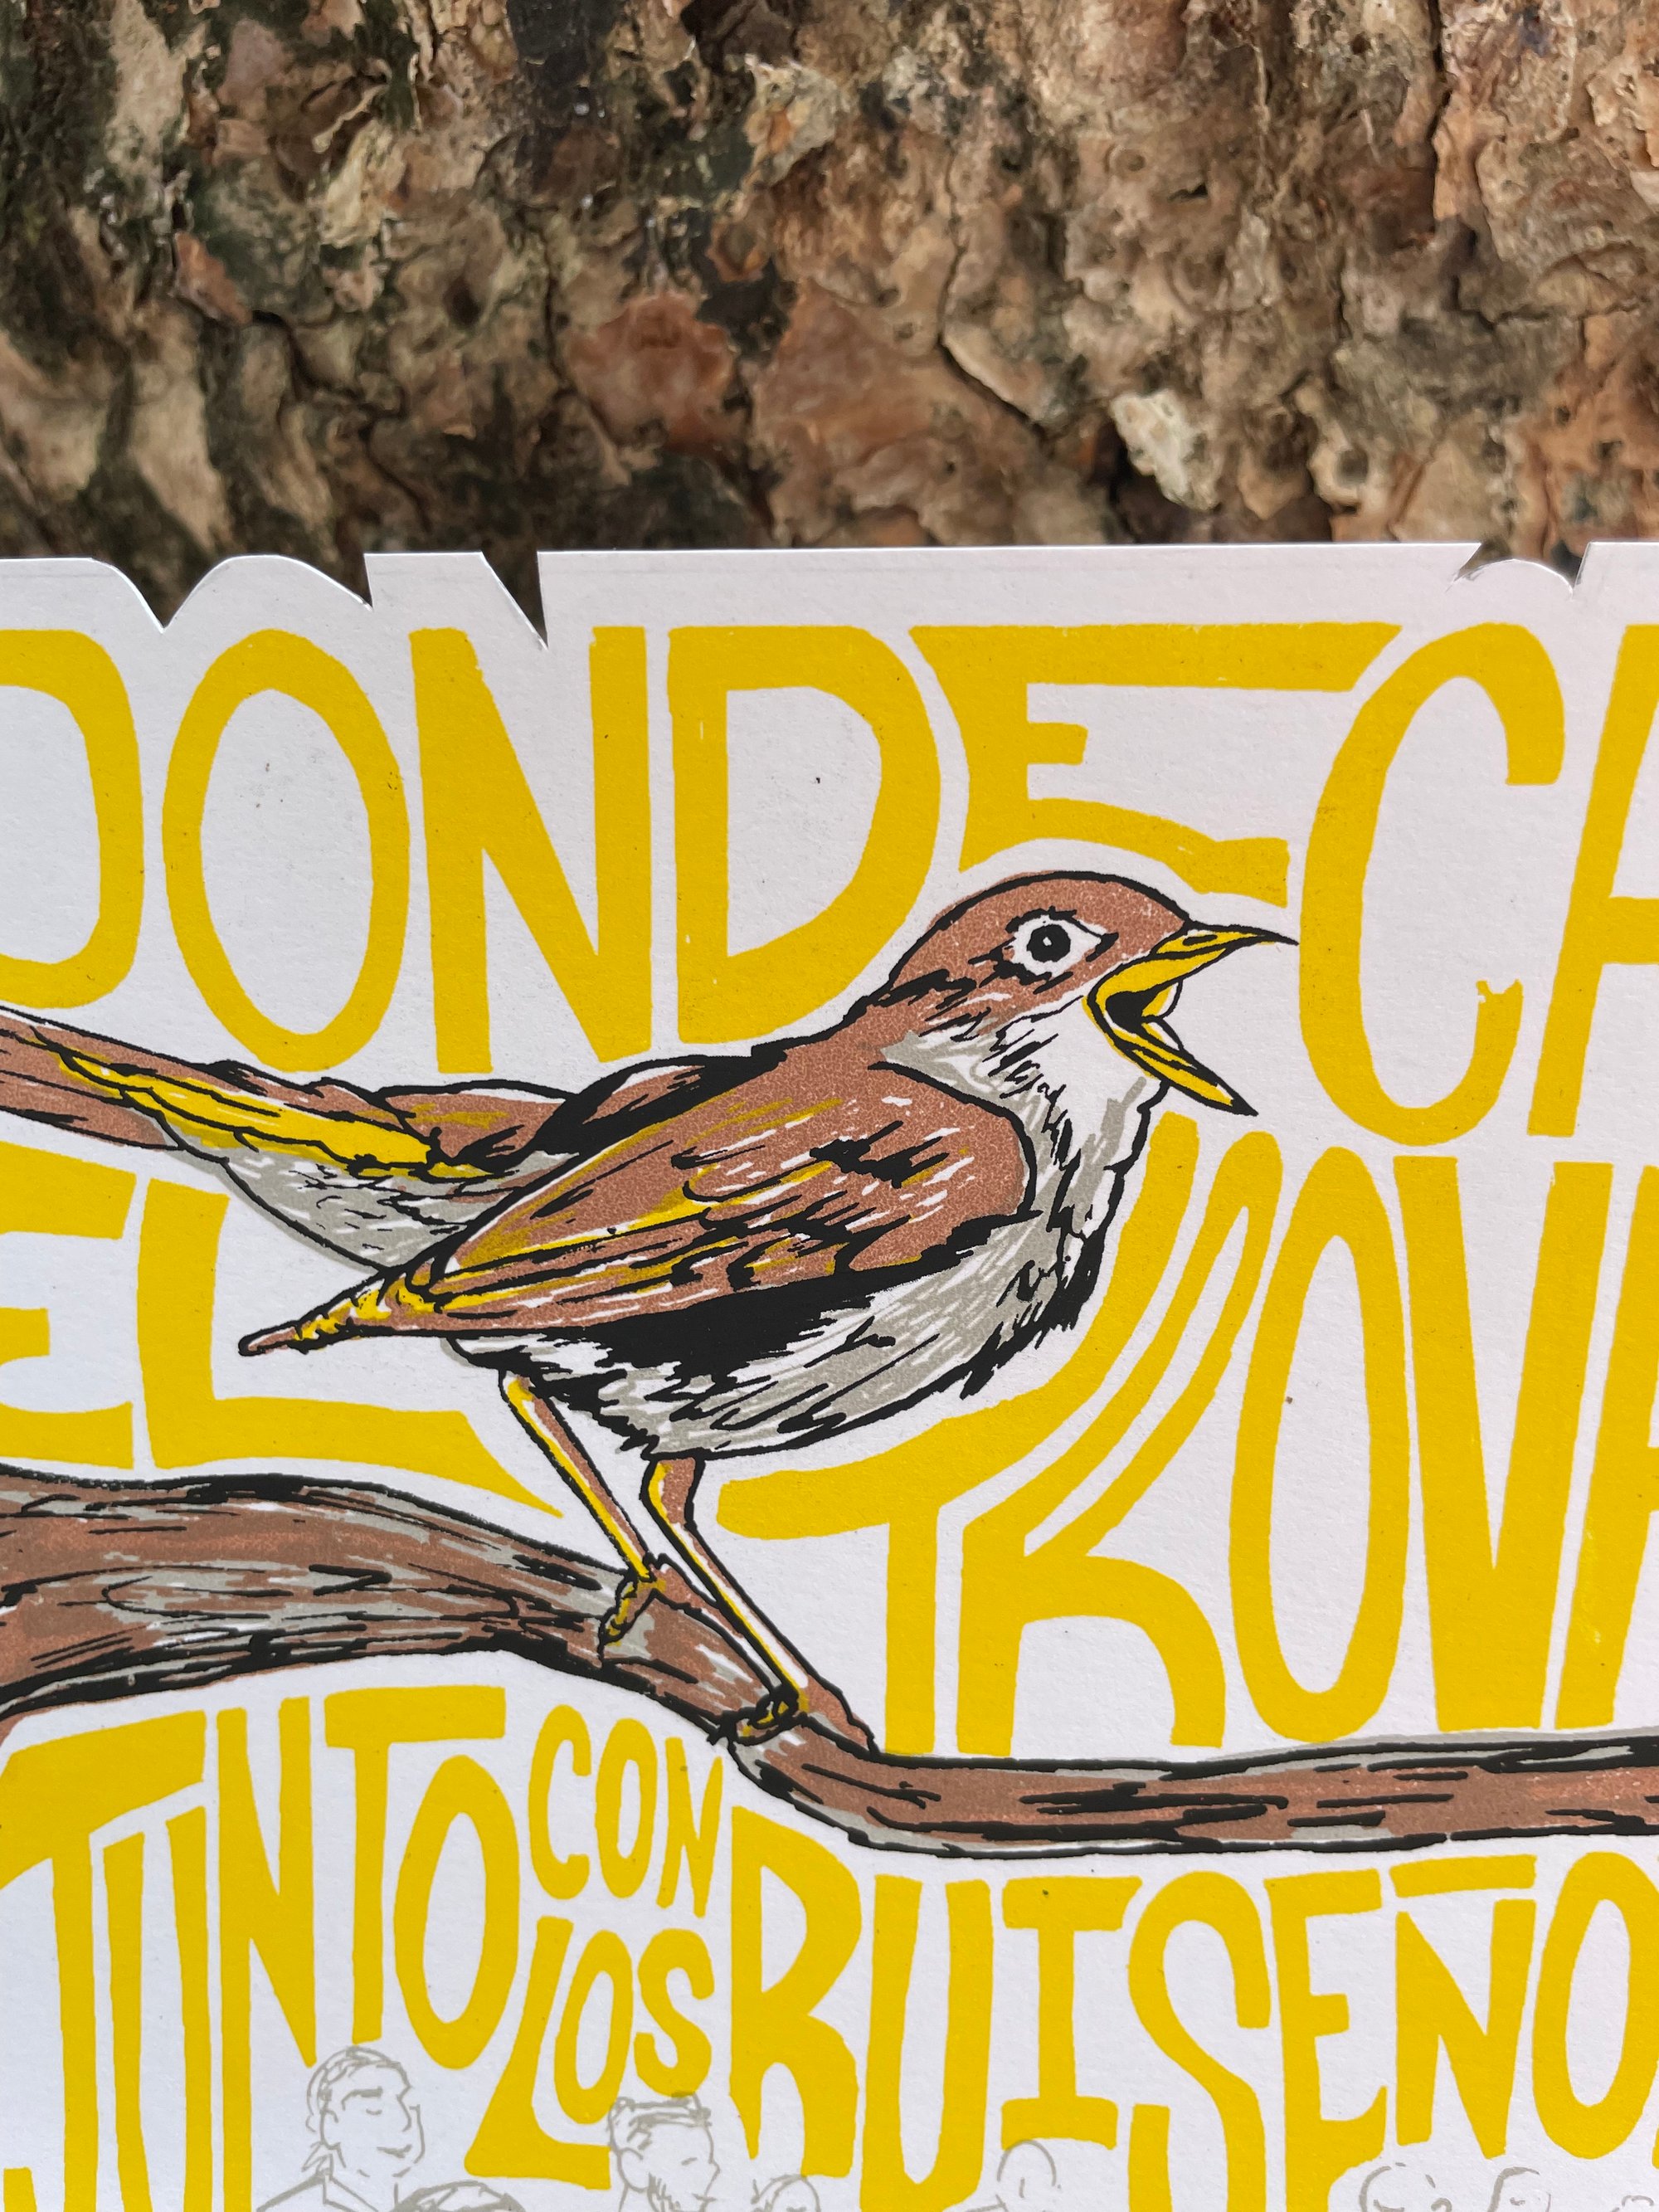 DONDE CA
EL TROVA
JUNTO CON LOS RUISEÑO